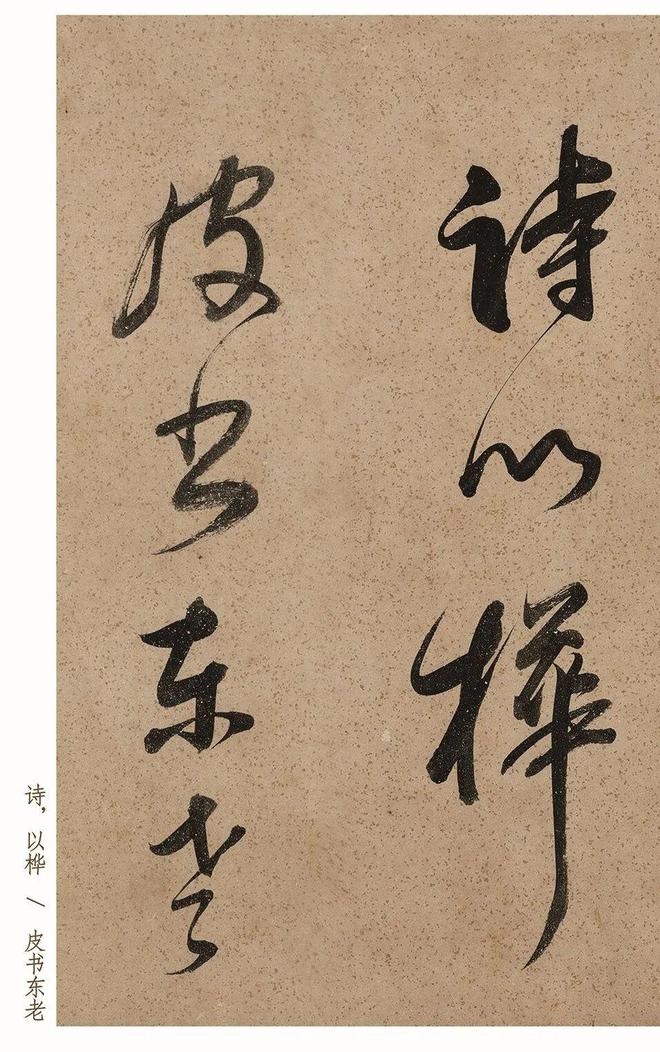 詩以樺
皮书东老
诗，以桦 / 皮书东老